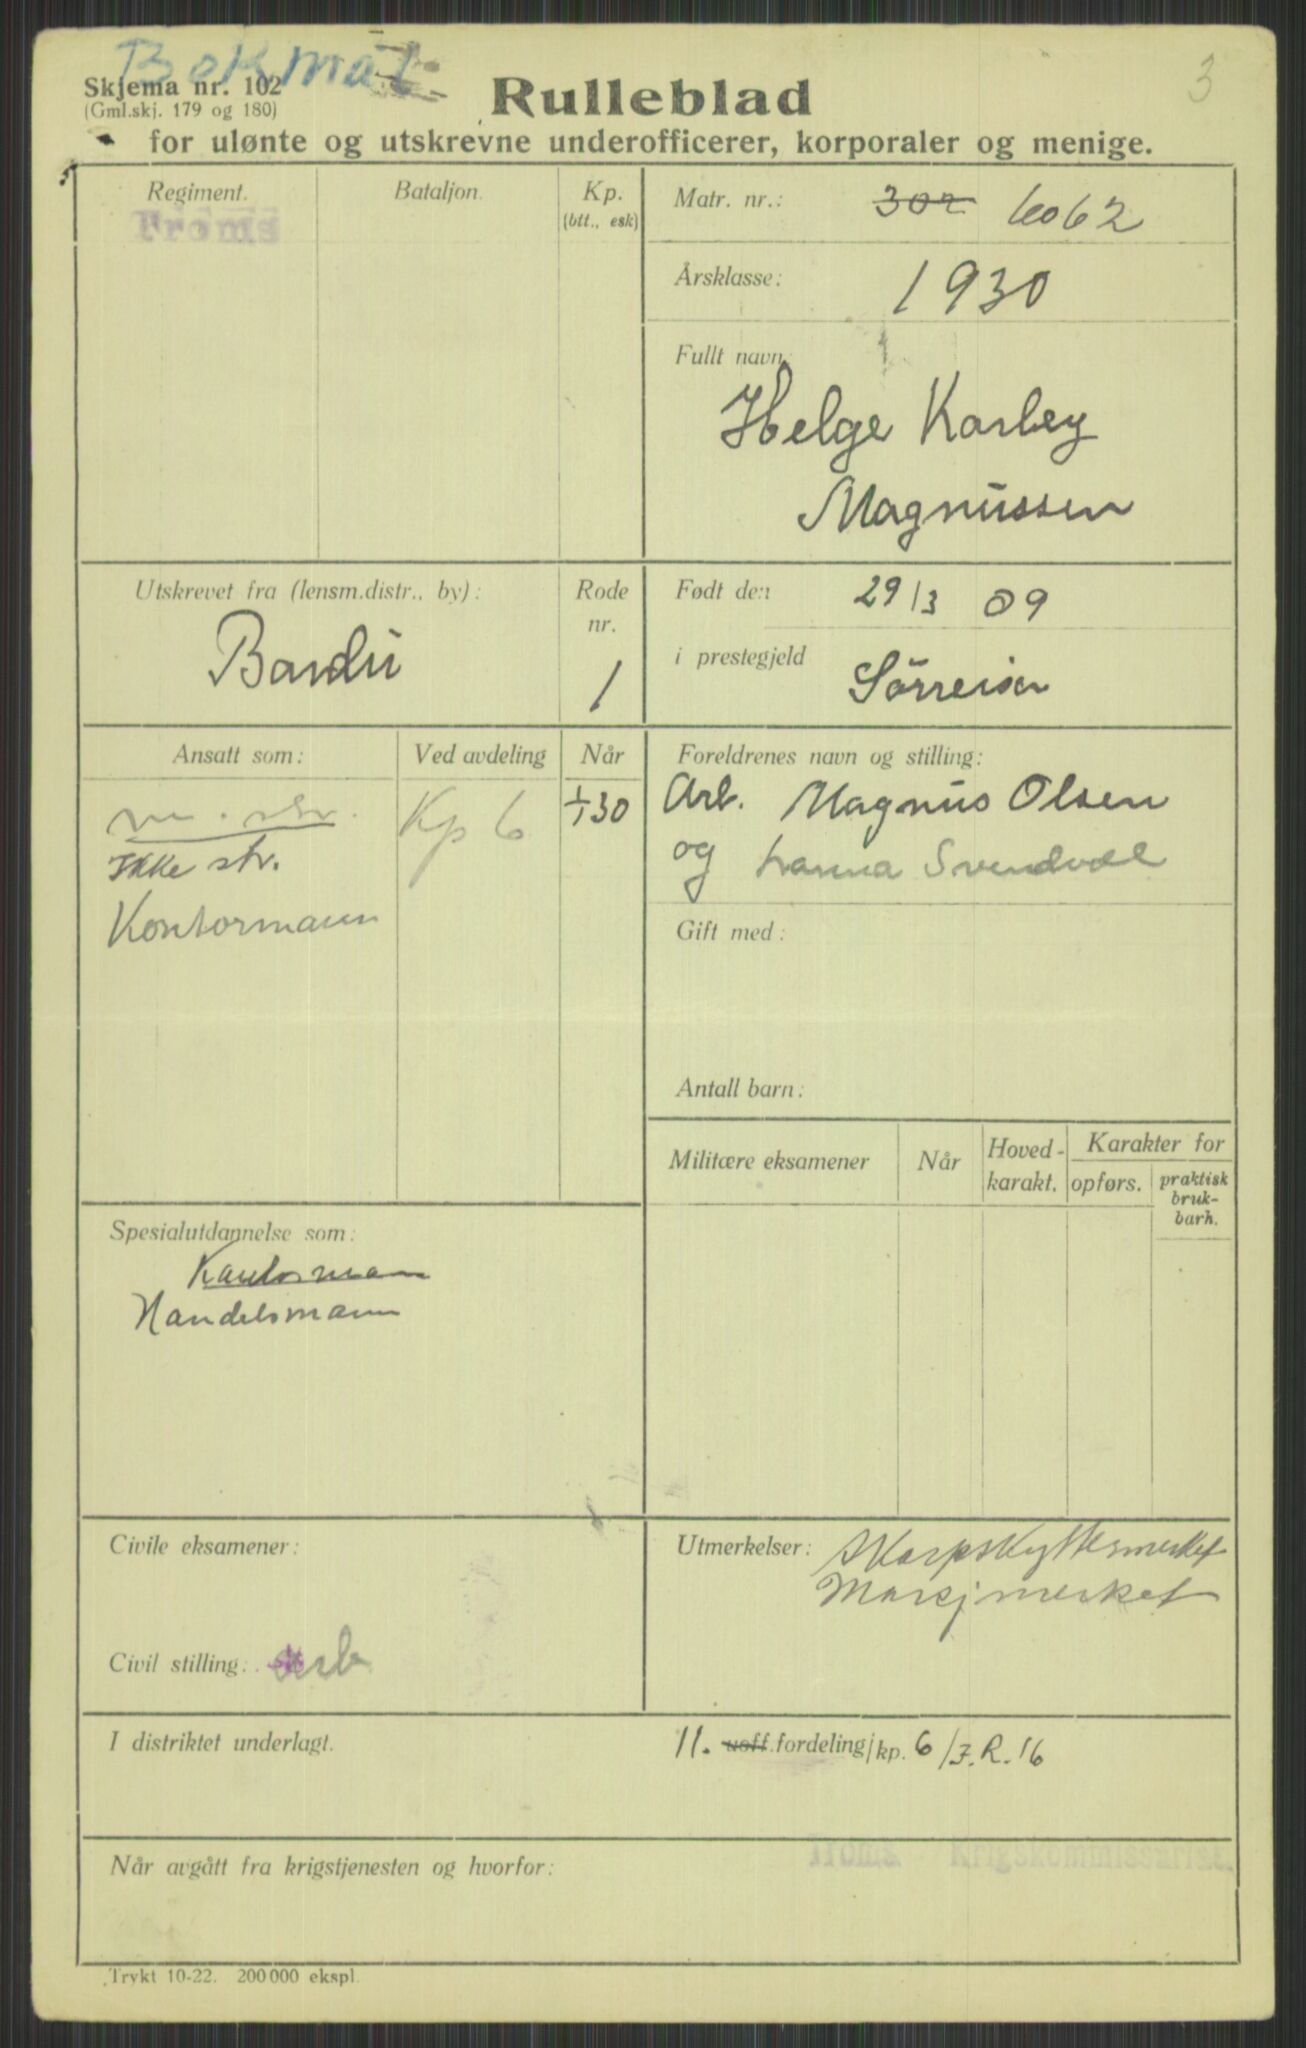 Bokmål
3
Skjema nr. 102
(Gml.skj. 179 og 180)
Rulleblad
for ulønte og utskrevne underofficerer, korporaler og menige.
Regiment.
Troms
Bataljon.
Kp.
(btt., esk)
Matr. nr.: 302 6062
Årsklasse: 1930
Fullt navn:
Helge Karley
Magnussen
Utskrevet fra (lensm.distr., by):
Bardu
Rode
nr.
1
Født den 29/3 09
i prestegjeld Sörreisa
Ansatt som:
Ved avdeling
Når
Kp 6
1/1 30
Ikke str.
Kontormann
Foreldrenes navn og stilling:
Arb. Magnus Olsen
og
Gift med:
Antall barn:
Militære eksamener
Når
Hoved-
karakt.
Karakter for
opførs.
praktisk
bruk-
barh.
Spesialutdannelse som:
Kontormann
Handelsmann
Civile eksamener:
Civil stilling: arb
Utmerkelser: Skarpskyttermerket
Marsjmerket
I distriktet underlagt.
11. uoff.fordeling/kp. 6/I.R. 16
Når avgått fra krigstjenesten og hvorfor:
Troms Krigskommissariat.
Trykt 10-22. 200 000 ekspl.